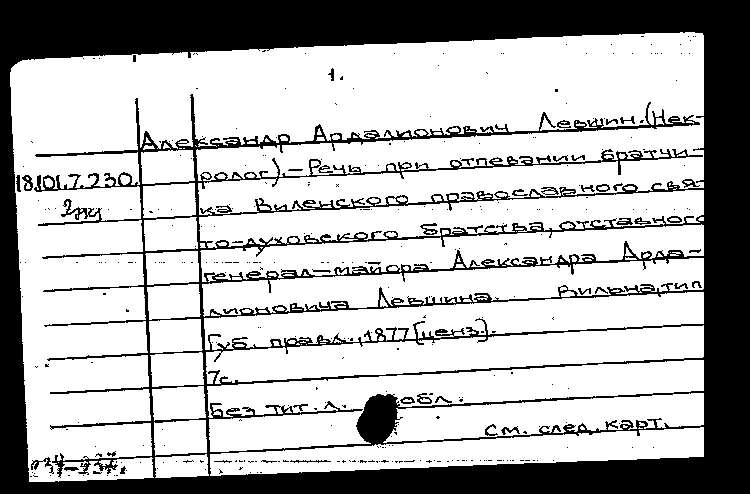 1.
Александр Ардалионович Левшин. (Нек-
18.101.7.230.
ролог).—Речь при отпевании братчи-
ка Виленского православного свя-
то-духовского братства, отставного
генерал-майора Александра Арда-
лионовича Левшина. Вильна, тип.
Губ. правл., 1877 [ценз].
7с.
Без тит. л. обл.
см. след. карт.